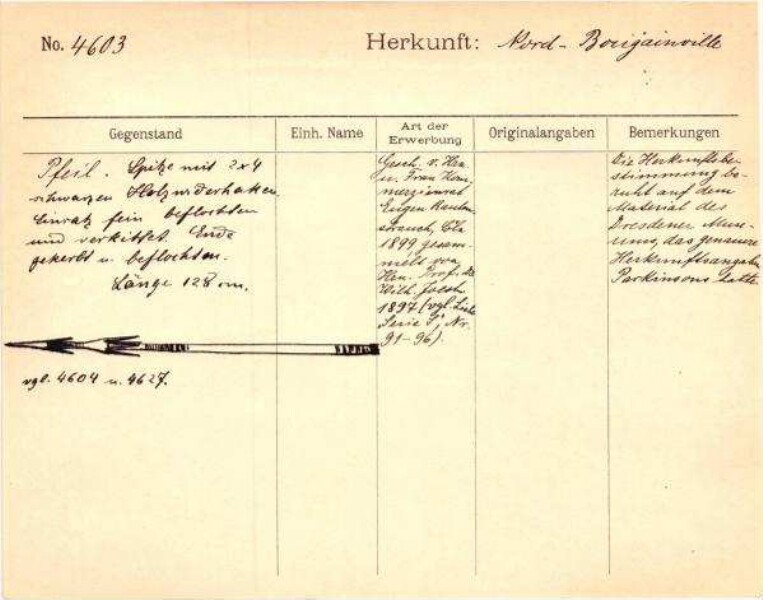 No. 4603
Herkunft: Nord-Bougainville
Gegenstand
Einh. Name
Art der
Erwerbung
Originalangaben
Bemerkungen
Pfeil. Spitze mit 2x4
schwarzen Holzwiderhaken.
Einsatz fein beflochten
und verkittet. Ende
gekerbt u. beflochten.
Länge 128 cm.
Gesch. v. Hrn.
u. Frau Kom-
merzienrat
Eugen Rauten-
strauch, Cöln
1899 gesam-
melt von
Hrn. Prof. Dr.
Wilh. Joest
1897 (vgl. Liste
Serie S, Nr.
91-96).
Die Herkunftsbe-
stimmung be-
ruht auf dem
Material des
Dresdener Muse-
ums, das genauere
Herkunftsangaben
Parkinsons hatte.
vgl. 4604 u. 4627.